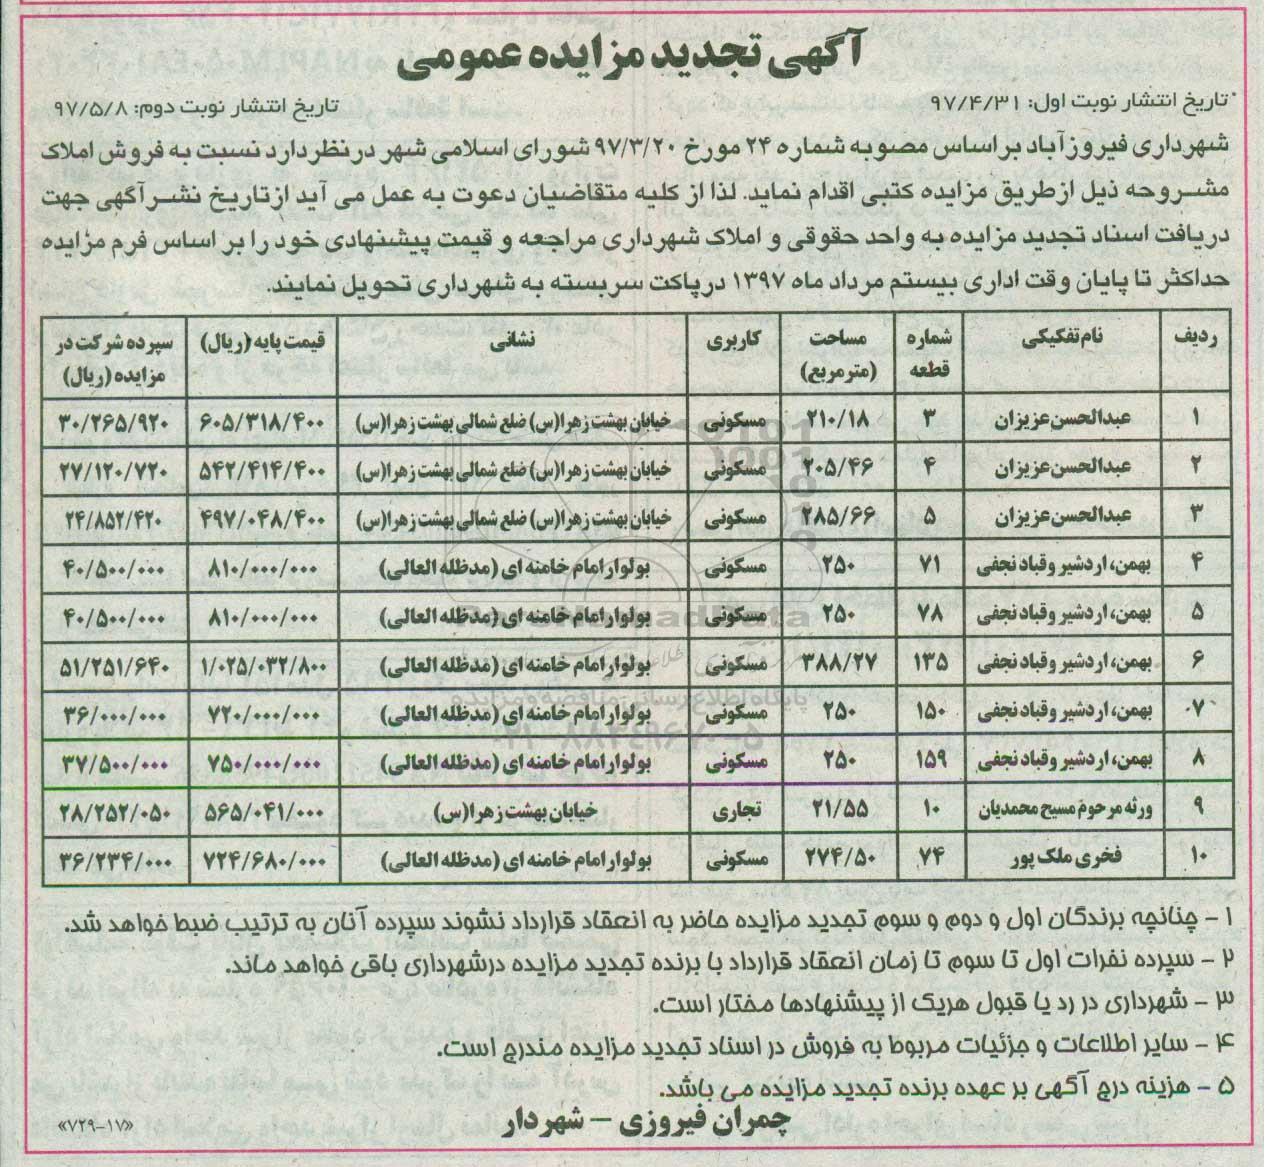 آگهی تجدید مزایده عمومی
تاریخ انتشار نوبت اول: ۹۷/۴/۳۱ تاریخ انتشار نوبت دوم: ۹۷/۵/۸
شهرداری فیروزآباد براساس مصوبه شماره ۲۴ مورخ ۹۷/۳/۲۰ شورای اسلامی شهر درنظردارد نسبت به فروش املاک
مشروحه ذیل ازطریق مزایده کتبی اقدام نماید. لذا از کلیه متقاضیان دعوت به عمل می آید ازتاریخ نشرآگهی جهت
دریافت اسناد تجدید مزایده به واحد حقوقی و املاک شهرداری مراجعه و قیمت پیشنهادی خود را بر اساس فرم مزایده
حداکثر تا پایان وقت اداری بیستم مرداد ماه ۱۳۹۷ درپاکت سربسته به شهرداری تحویل نمایند.
ردیف نام تفکیکی شماره قطعه مساحت (مترمربع) کاربری نشانی قیمت پایه (ریال) سپرده شرکت در مزایده (ریال)
۱ عبدالحسن عزیزان ۳ ۲۱۰/۱۸ مسکونی خیابان بهشت زهرا(س) ضلع شمالی بهشت زهرا(س) ۶۰۵/۳۱۸/۴۰۰ ۳۰/۲۶۵/۹۲۰
۲ عبدالحسن عزیزان ۴ ۲۰۵/۴۶ مسکونی خیابان بهشت زهرا(س) ضلع شمالی بهشت زهرا(س) ۵۴۲/۴۱۴/۴۰۰ ۲۷/۱۲۰/۷۲۰
۳ عبدالحسن عزیزان ۵ ۲۸۵/۶۶ مسکونی خیابان بهشت زهرا(س) ضلع شمالی بهشت زهرا(س) ۴۹۷/۰۴۸/۴۰۰ ۲۴/۸۵۲/۴۲۰
۴ بهمن، اردشیر وقباد نجفی ۷۱ ۲۵۰ مسکونی بولوار امام خامنه ای (مدظله العالی) ۸۱۰/۰۰۰/۰۰۰ ۴۰/۵۰۰/۰۰۰
۵ بهمن، اردشیر وقباد نجفی ۷۸ ۲۵۰ مسکونی بولوار امام خامنه ای (مدظله العالی) ۸۱۰/۰۰۰/۰۰۰ ۴۰/۵۰۰/۰۰۰
۶ بهمن، اردشیر وقباد نجفی ۱۳۵ ۳۸۸/۲۷ مسکونی بولوار امام خامنه ای (مدظله العالی) ۱/۰۲۵/۰۳۲/۸۰۰ ۵۱/۲۵۱/۶۴۰
۷ بهمن، اردشیر وقباد نجفی ۱۵۰ ۲۵۰ مسکونی بولوار امام خامنه ای (مدظله العالی) ۷۲۰/۰۰۰/۰۰۰ ۳۶/۰۰۰/۰۰۰
۸ بهمن، اردشیر وقباد نجفی ۱۵۹ ۲۵۰ مسکونی بولوار امام خامنه ای (مدظله العالی) ۷۵۰/۰۰۰/۰۰۰ ۳۷/۵۰۰/۰۰۰
۹ ورثه مرحوم مسیح محمدیان ۱۰ ۲۱/۵۵ تجاری خیابان بهشت زهرا(س) ۵۶۵/۰۴۱/۰۰۰ ۲۸/۲۵۲/۰۵۰
۱۰ فخری ملک پور ۷۴ ۲۷۴/۵۰ مسکونی بولوار امام خامنه ای (مدظله العالی) ۷۲۴/۶۸۰/۰۰۰ ۳۶/۲۳۴/۰۰۰
۱ - چنانچه برندگان اول و دوم و سوم تجدید مزایده حاضر به انعقاد قرارداد نشوند سپرده آنان به ترتیب ضبط خواهد شد.
۲ - سپرده نفرات اول تا سوم تا زمان انعقاد قرارداد با برنده تجدید مزایده درشهرداری باقی خواهد ماند.
۳ - شهرداری در رد یا قبول هریک از پیشنهادها مختار است.
۴ - سایر اطلاعات و جزئیات مربوط به فروش در اسناد تجدید مزایده مندرج است.
۵ - هزینه درج آگهی بر عهده برنده تجدید مزایده می باشد.
چمران فیروزی - شهردار
«۷۲۹-۱۷»